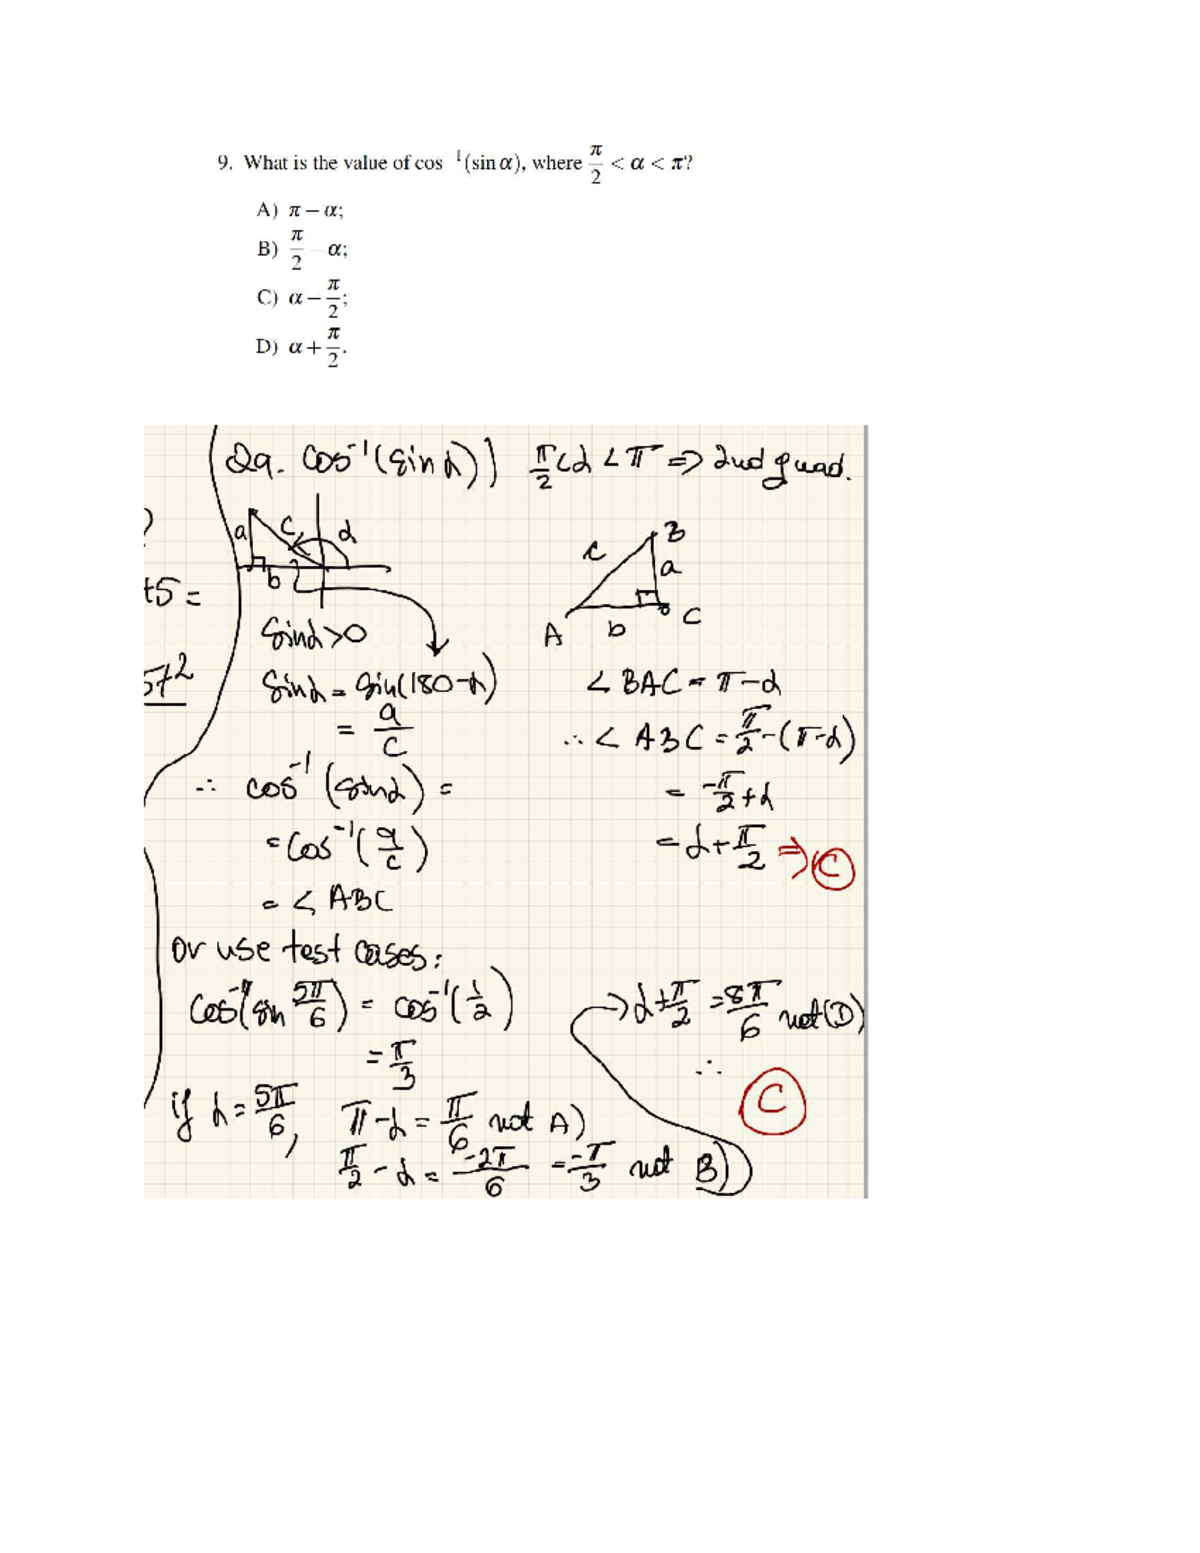 9. What is the value of cos ⁻¹(sin α), where π/2 < α < π?
A) π − α;
B) π/2 − α;
C) α − π/2;
D) α + π/2.
Q9. cos⁻¹(sin α)) π/2 < α < π ⇒ 2nd quad.
a c α
b
?
t5 =
572
c B
a
A b C
sin α > 0
sin α = sin(180-α)
= a/c
∴ cos⁻¹(sin α) =
= cos⁻¹(a/c)
= < ABC
∠ BAC = π-α
∴ < ABC = π/2-(π-α)
= -π/2+α
= α+π/2 ⇒ C
or use test cases:
cos⁻¹(sin 5π/6) = cos⁻¹(1/2)
= π/3
if α = 5π/6, π-α = π/6 not A)
π/2 - α = -2π/6 = -π/3 not B)
→ α+π/2 = 8π/6 not (D)
∴ C